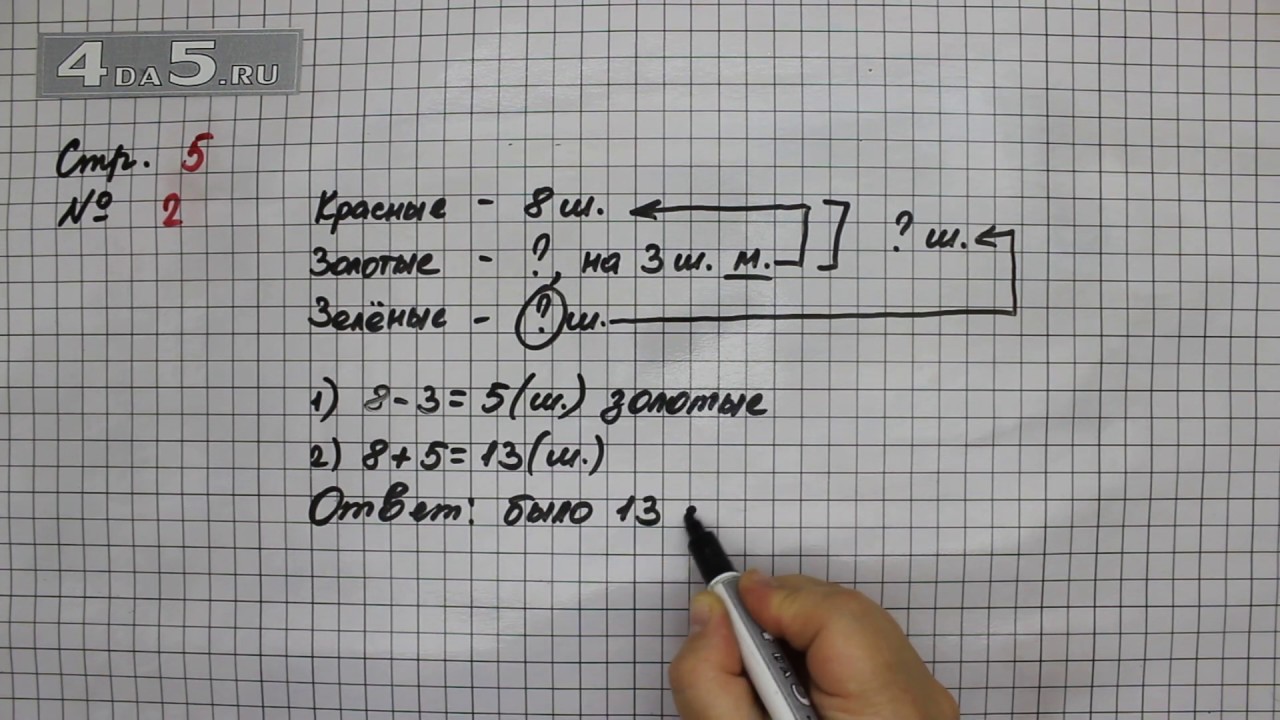 4DA5.RU
Стр. 5
№ 2
Красные - 8 ш.
Золотые - ?, на 3 ш. м. ? ш.
Зелёные - ? ш.
1) 8-3=5(ш.) золотые
2) 8+5=13(ш.)
Ответ: было 13